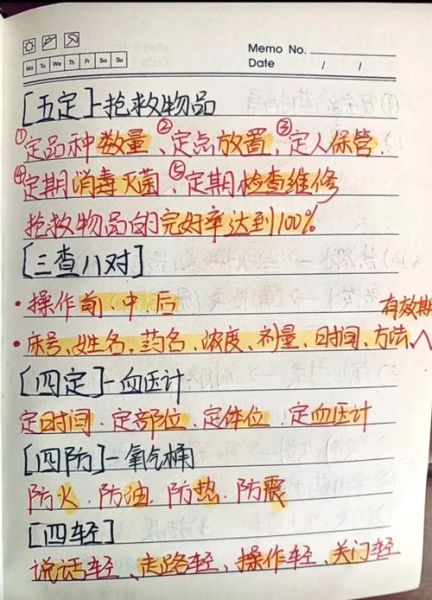 Memo No.
Mo Tu We Th Fr Sa Su
Date / /
[五定]-抢救物品
①定品种数量、②定点放置、③定人保管、
④定期消毒灭菌、⑤定期检查维修
抢救物品的完好率达到100%
[三查八对]
·操作前、中、后
有效期
·床号、姓名、药名、浓度、剂量、时间、方法、^
[四定]-血压计
定时间、定部位、定体位、定血压计
[四防]-氧气桶
防火、防油、防热、防震
[四轻]
说话轻、走路轻、操作轻、关门轻